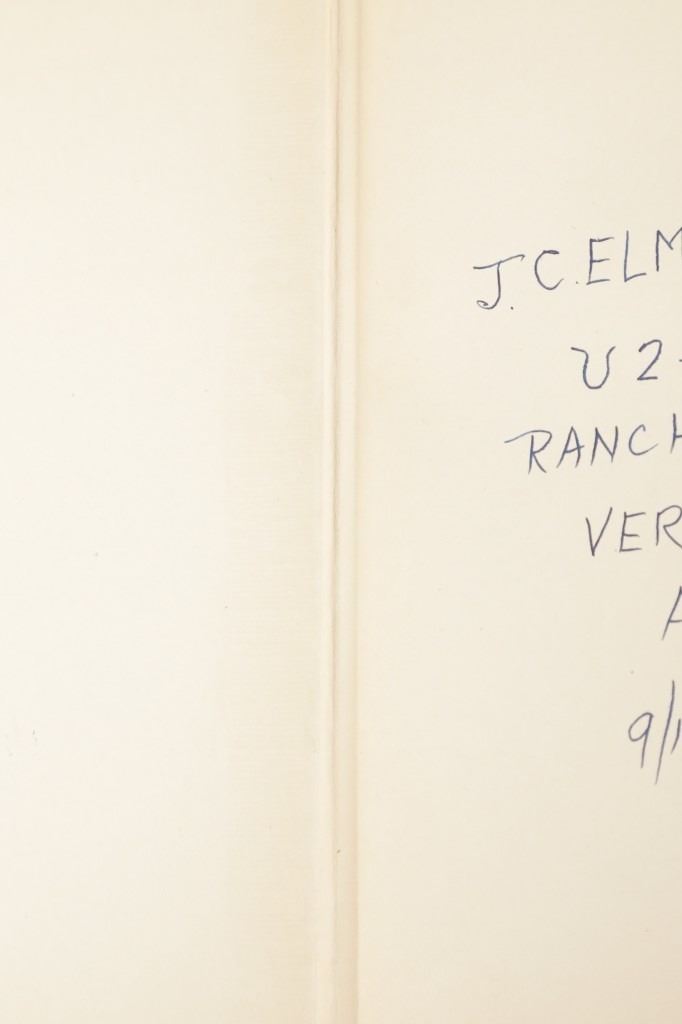 J.C.ELM
U 2-
RANCH
VER
A
9/1